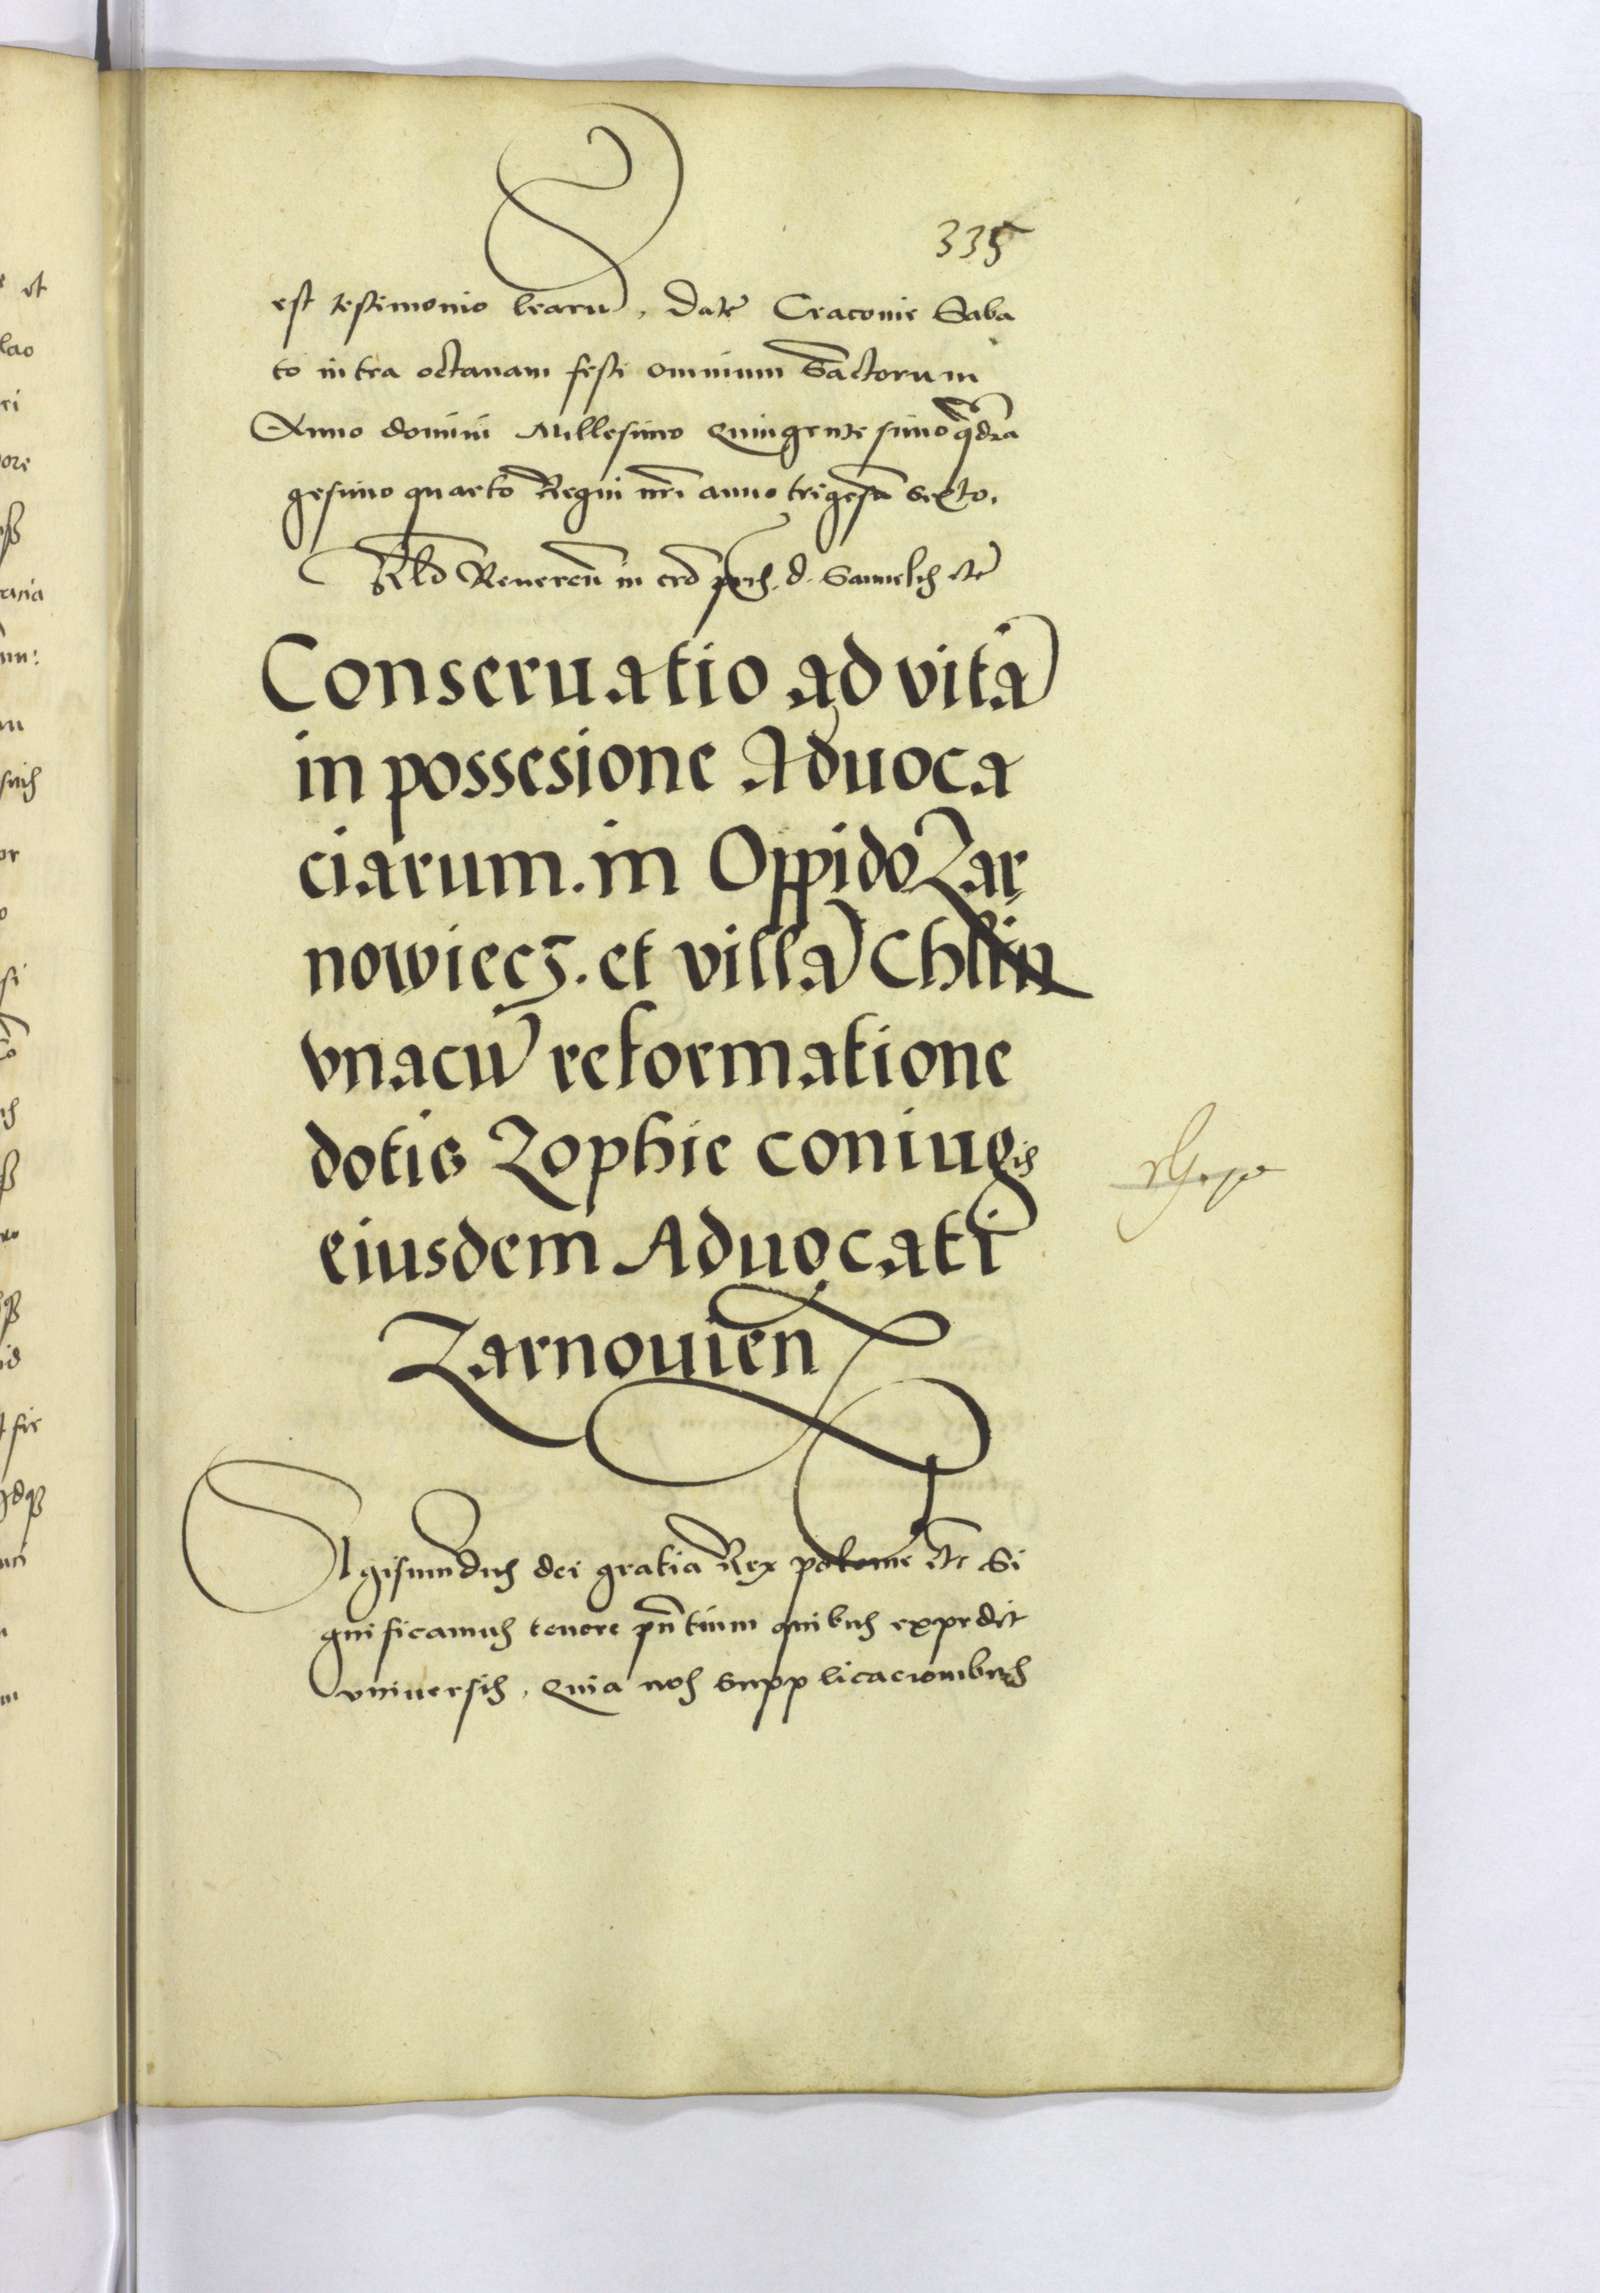 335
est testimonio l̅rarum, Date Cracovie Saba
to intra octavam festi omnium Sa̅ctorum
Anno domini Millesimo Quingentesimo q̅dra
gesimo quarto Regni nr̅i anno trigesi̅o sexto.
Rl̅o Reveren̅ in cr̅o p̅ris. d. Samuelis etc̅
Conseruatio ad vita̅
in possesione Aduoca
ciarum. in Oppido Zar
nowiecz. et villa Chlin
vnacu̅ reformatione
dotis Zophie coniugis
eiusdem Aduocati
Zarnouien̅
Sigismundus dei gratia Rex polonie etc̅ Si
gnificamus tenore pn̅tium quibus expedit
vniversis, Quia nos supplicacionibus